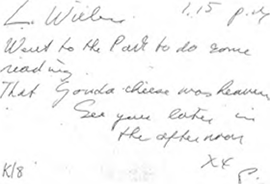 L. Wilkins 1.15 p.m
Went to the Park to do some
reading.
That Gouda cheese was heaven
See you later in
the afternoon
XX
K/8